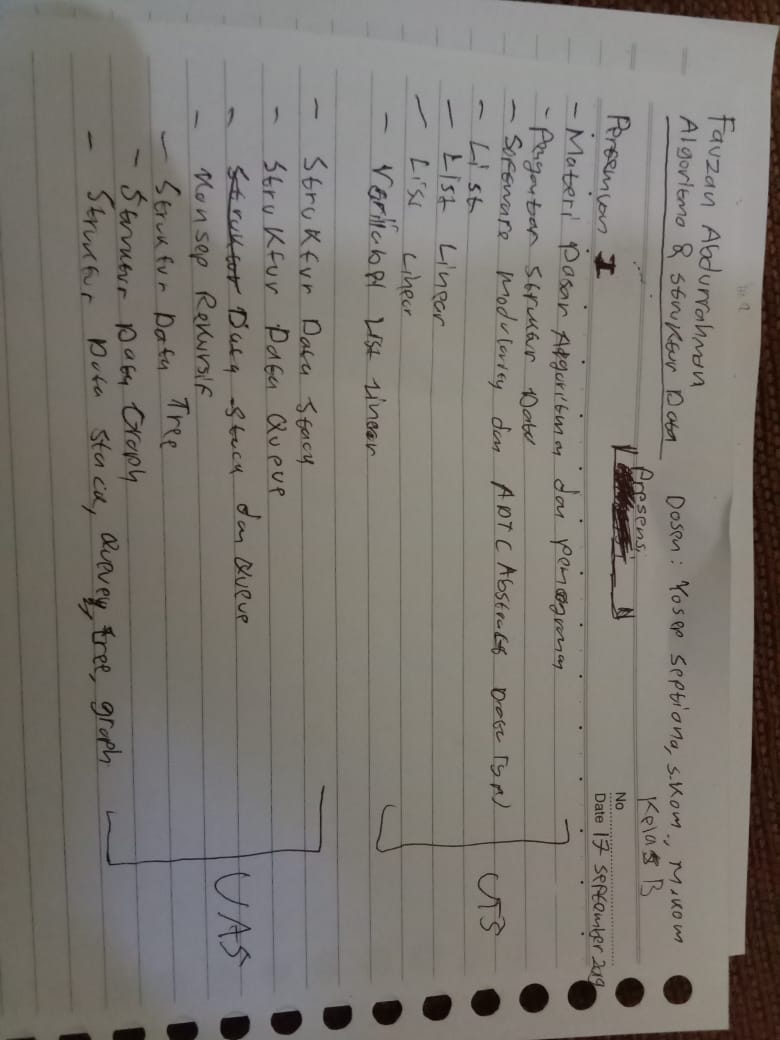 Fauzan Abdurrahman
Algoritma & struktur Data
Dosen: Yosep Septiana, S.Kom., M.Kom
Kelas B
Presensi
No
Date 17 September 2019
Pertemuan I
- Materi Dasar Algoritma dan pemrograman
- Pengantar Struktur Data
- Software Modularity dan ADT (Abstrak Data Type)
- List
- List Linear
- List Linear
- Variabel List Linear
UTS
- Struktur Data Stack
- Struktur Data Queue
- Struktur Data Stack dan Queue
- Konsep Rekursif
- Struktur Data Tree
- Struktur Data Graph
- Struktur Data Stack, Queue, tree, graph
UAS